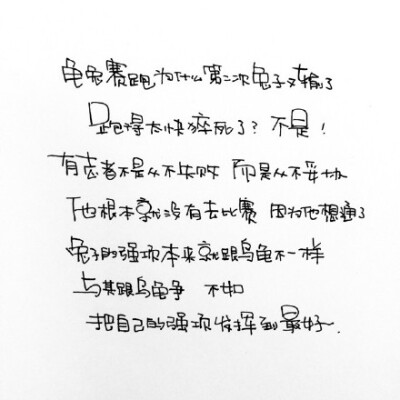 龟兔赛跑为什么第二次兔子又输了
跑得太快猝死了？不是！
有志者不是从不失败 而是从不妥协
他根本就没有去比赛 因为他想通了
兔子的强项本来就跟乌龟不一样
与其跟乌龟争 不如
把自己的强项发挥到最好.